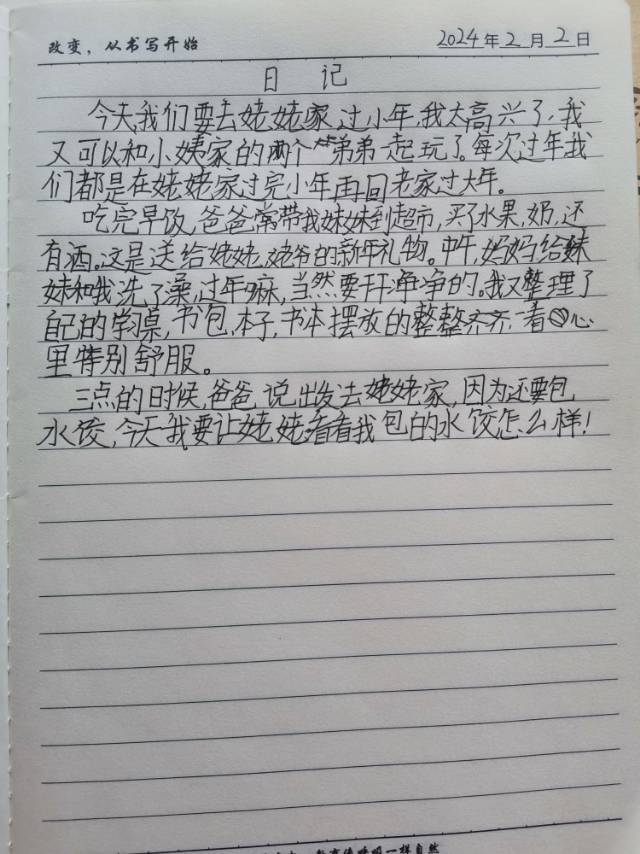 改变，从书写开始 2024年2月2日
日 记
今天，我们要去姥姥家过小年，我太高兴了，我
又可以和小姨家的两个弟弟一起玩了。每次过年我
们都是在姥姥家过完小年再回老家过大年。
吃完早饭，爸爸带我妹妹到超市，买了水果，奶，还
有酒。这是送给姥姥，姥爷的新年礼物。中午，妈妈给妹
妹和我洗了澡，过年嘛，当然要干净净的。我又整理了
自己的学习桌，书包，本子，书本摆放的整整齐齐一看心
里特别舒服。
三点的时候，爸爸，说出发去姥姥家，因为还要包
水饺，今天我要让姥姥看看我包的水饺怎么样！
一样自然